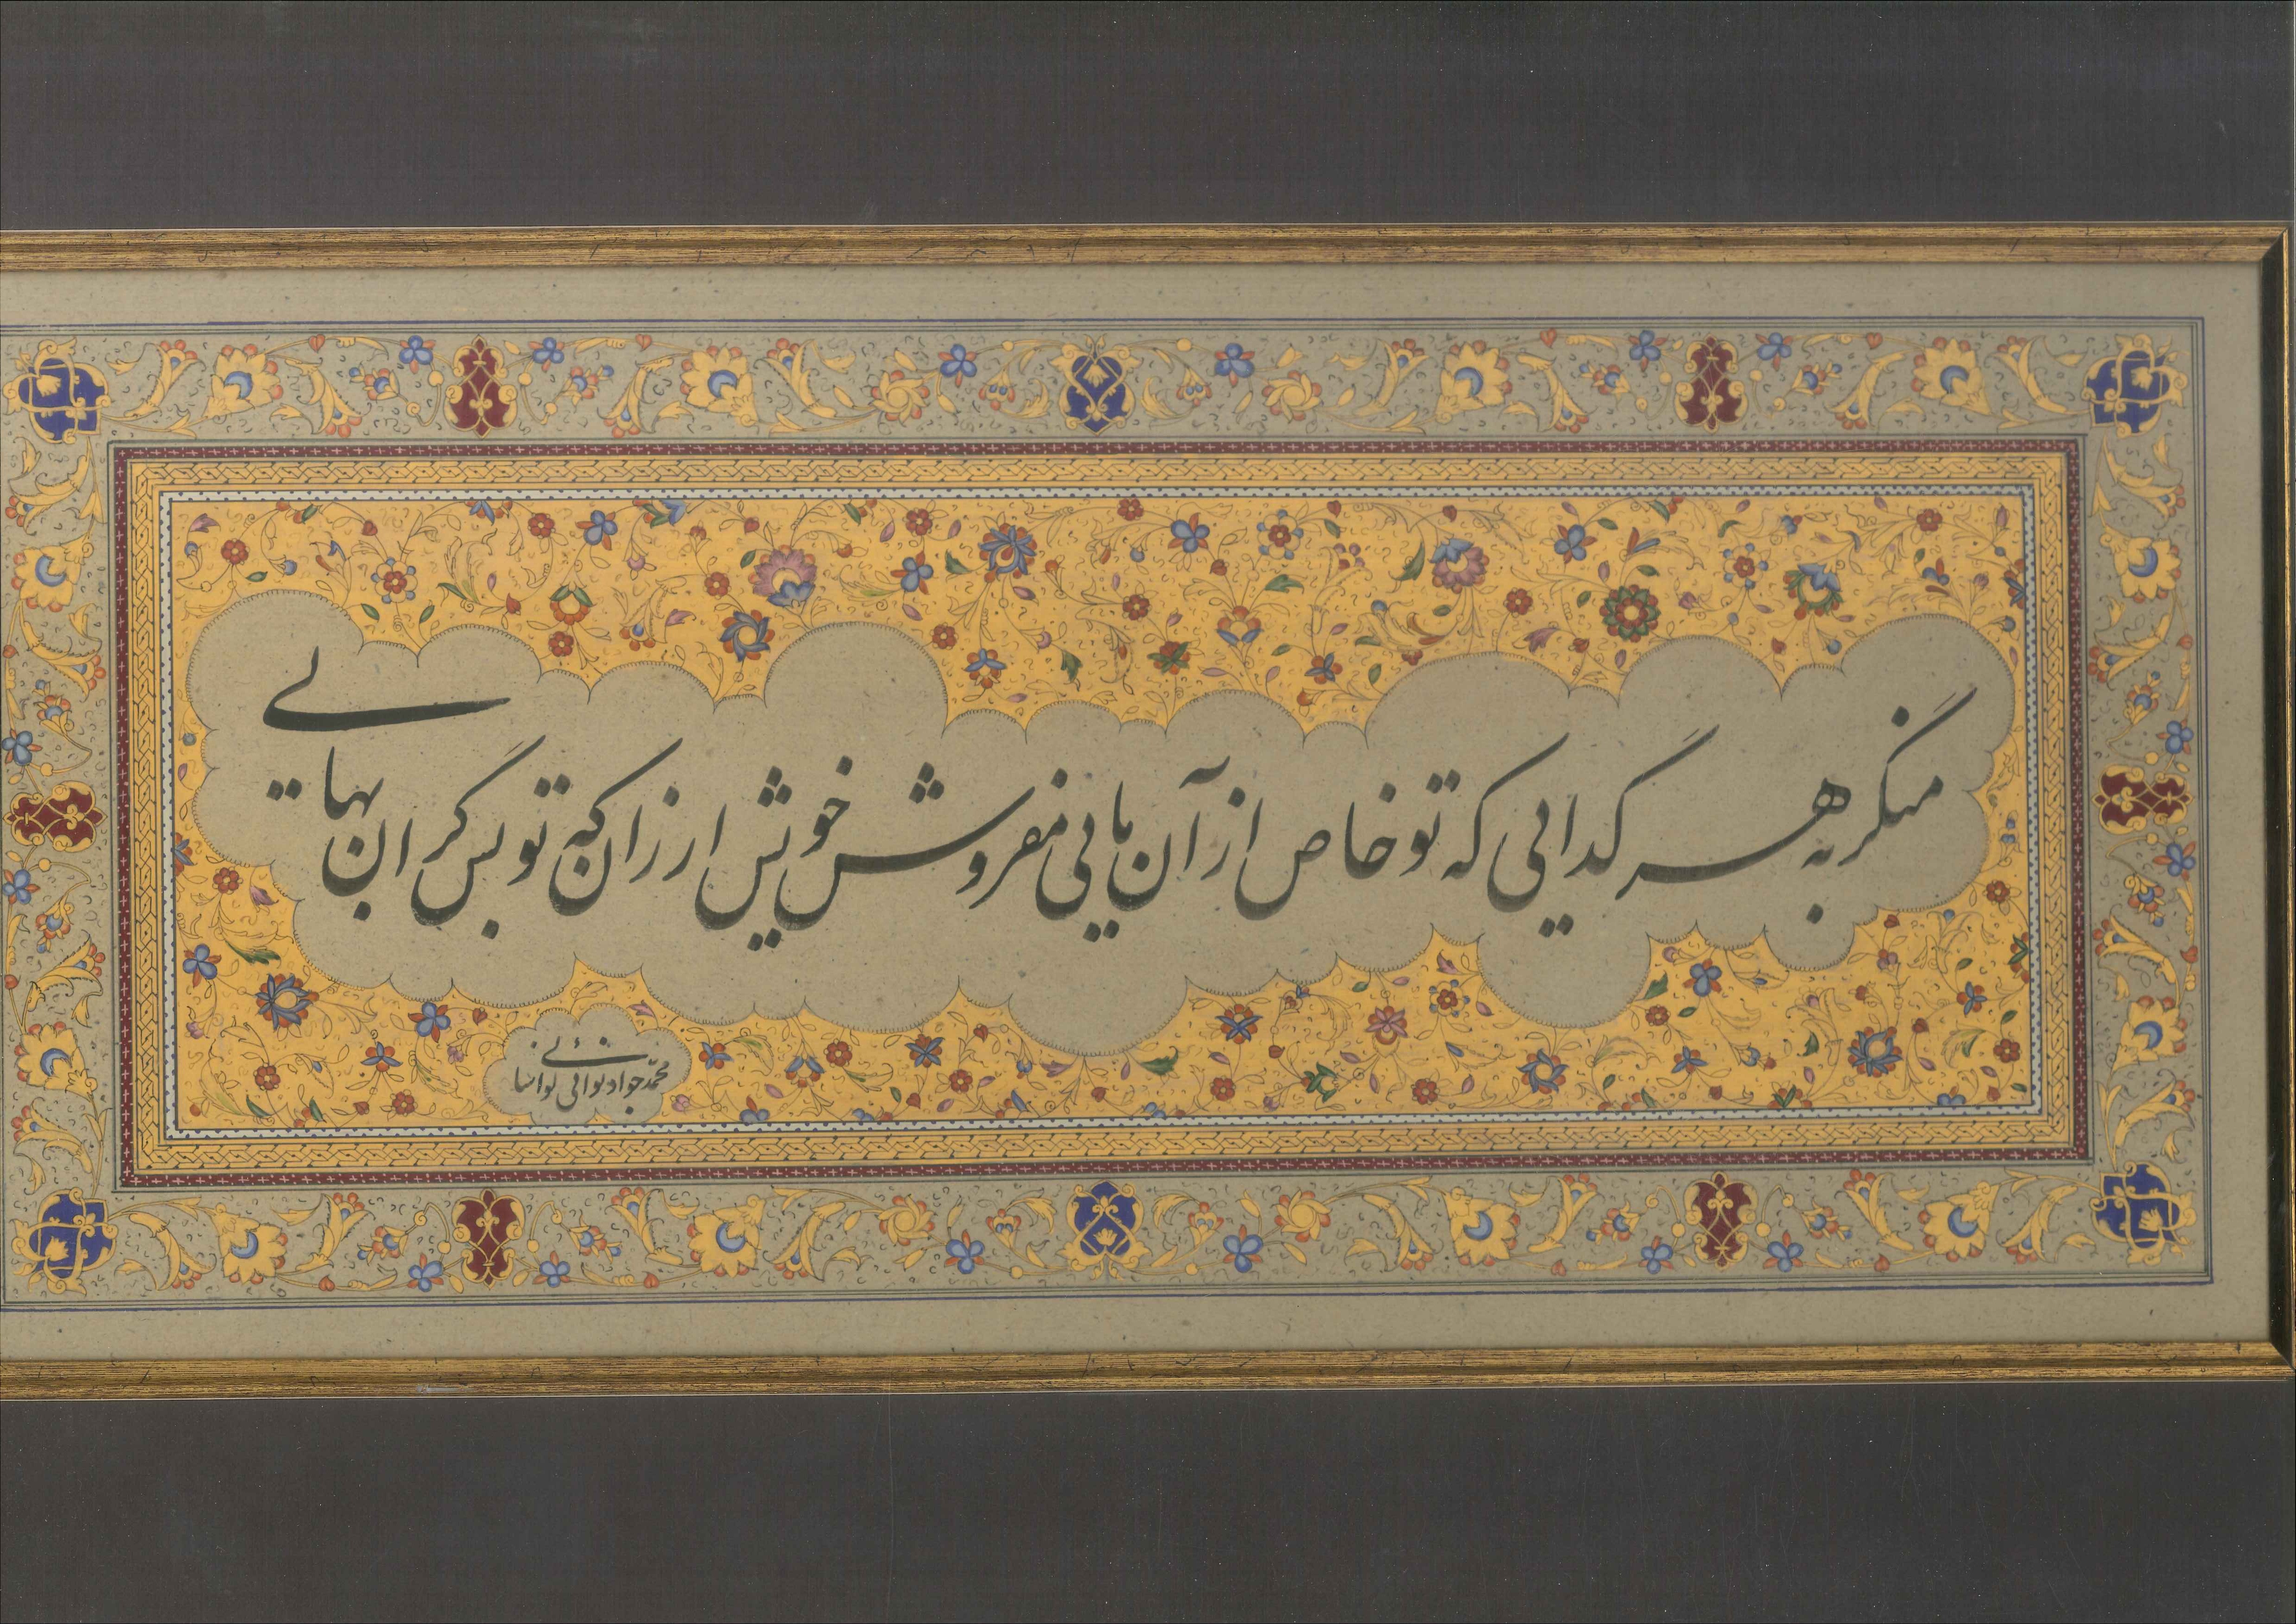 منگر به هر گدایی که تو خاص از آن مایی مفروش خویش ارزان که تو بس گران بهایی
محمّد جواد نوائی نوا